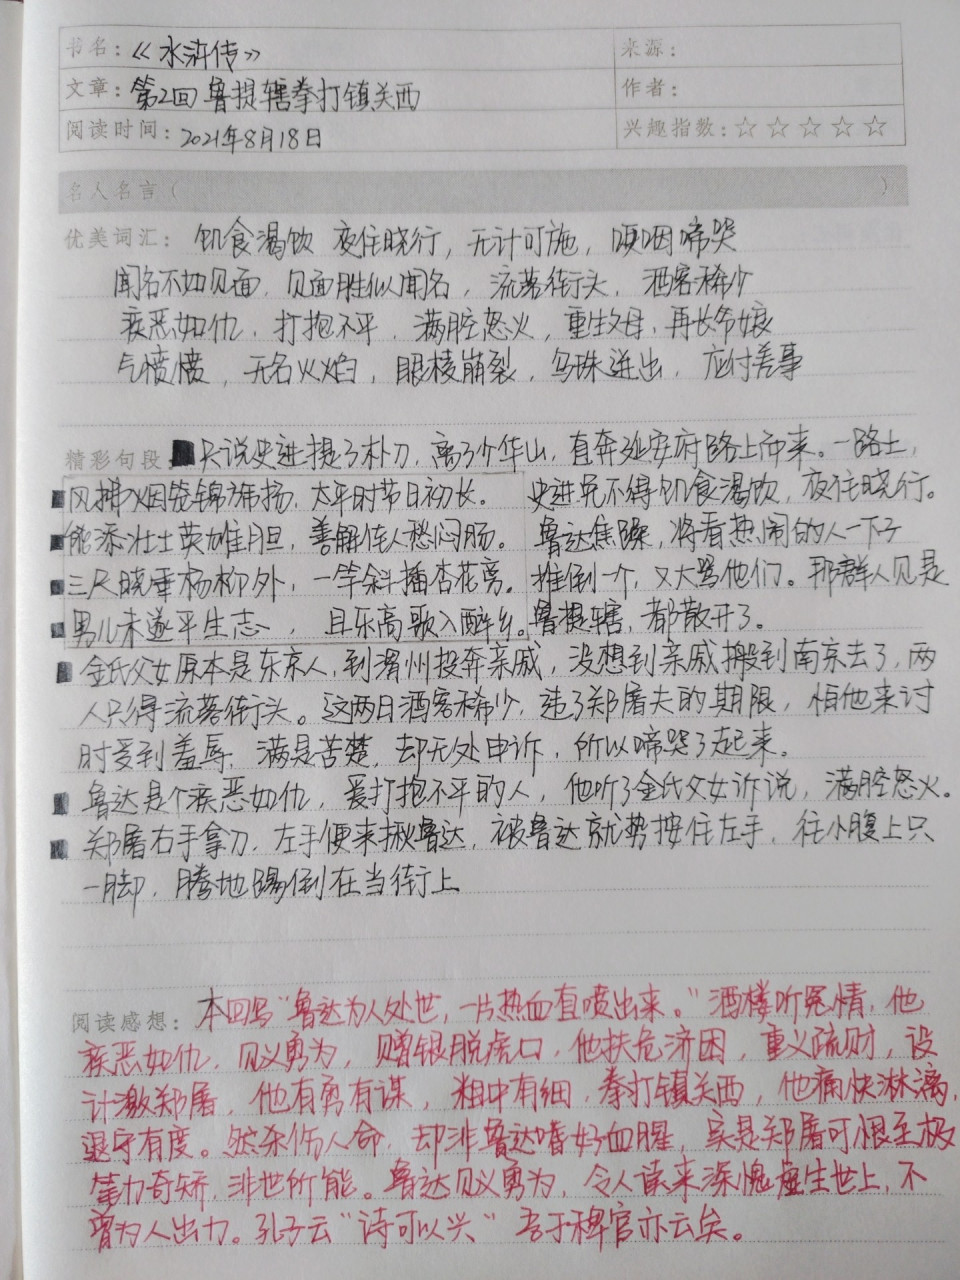 书名：《水浒传》
来源：
文章：第2回 鲁提辖拳打镇关西
作者：
阅读时间：2021年8月18日
兴趣指数：☆☆☆☆☆
名人名言（ ）
优美词汇： 饥食渴饮 夜住晓行，无计可施，哽咽啼哭
闻名不如见面，见面胜似闻名，流落街头，酒客稀少
疾恶如仇，打抱不平，满腔怒火，重生父母，再长爷娘
气愤愤，无名火焰，眼棱崩裂，乌珠迸出，应付差事
精彩句段 只说史进提了朴刀，离了少华山，直奔延安府路上而来。一路上，
风拂烟笼锦旆扬，太平时节日初长。 史进免不得饥食渴饮，夜住晓行。
能添壮士英雄胆，善解佳人愁闷肠。 鲁达焦躁，将看热闹的人一下子
三尺晓垂杨柳外，一竿斜插杏花旁。 推倒一个，又大骂他们。那群人见是
男儿未遂平生志，且乐高歌入醉乡。 鲁提辖，都散开了。
金氏父女原本是东京人，到渭州投奔亲戚，没想到亲戚搬到南京去了，两
人只得流落街头。这两日酒客稀少，违了郑屠夫的期限，怕他来讨
时受到羞辱，满是苦楚，却无处申诉，所以啼哭了起来。
鲁达是个疾恶如仇，爱打抱不平的人，他听了金氏父女诉说，满腔怒火。
郑屠右手拿刀，左手便来揪鲁达，被鲁达就势按住左手，往小腹上只
一脚，腾地踢倒在当街上
阅读感想： 本回写“鲁达为人处世，一片热血直喷出来。”酒楼听冤情，他
疾恶如仇，见义勇为，赠银脱虎口，他扶危济困，重义疏财，设
计激郑屠，他有勇有谋，粗中有细，拳打镇关西，他痛快淋漓，
退守有度。然杀伤人命，却非鲁达嗜好血腥，实是郑屠可恨至极
笔力奇矫，非世所能。鲁达见义勇为，令人读来深愧虚生世上，不
曾为人出力。孔子云“诗可以兴” 吾于稗官亦云矣。